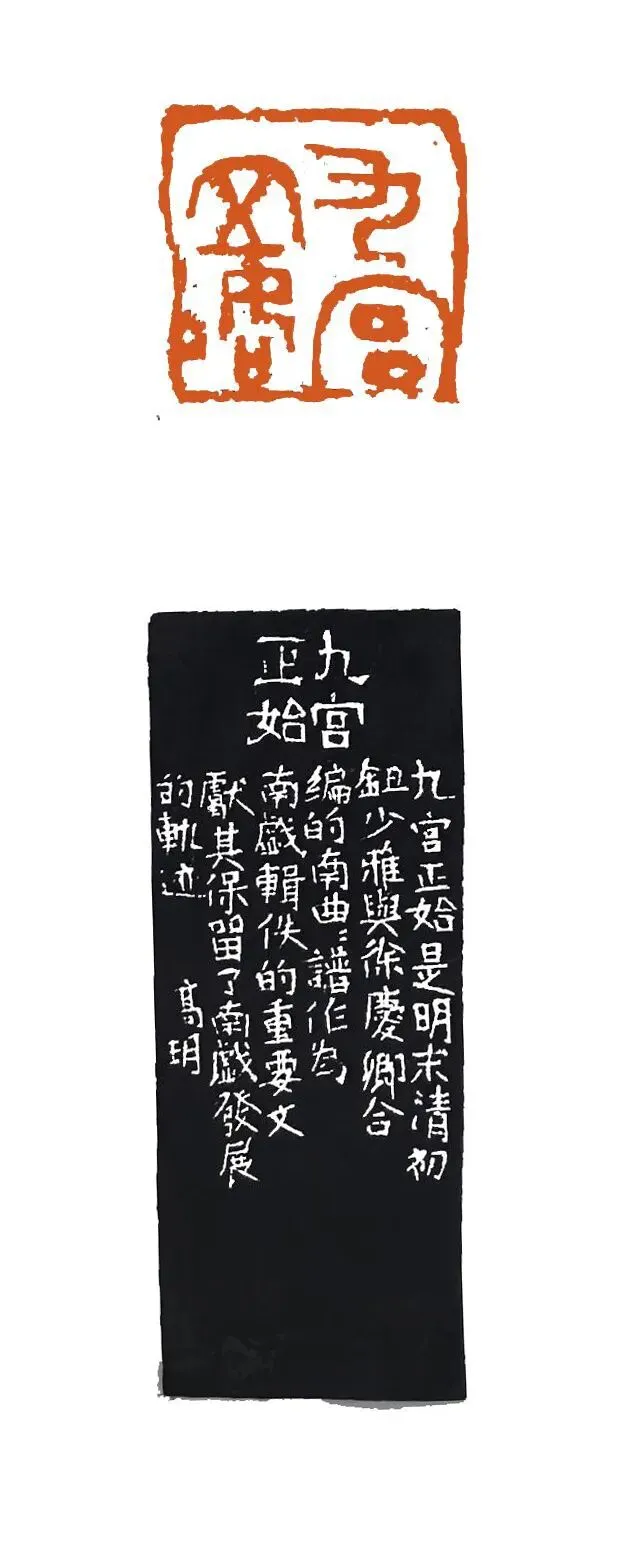 九宮
九宮
正始
九宮正始是明末清初
鈕少雅與徐慶卿合
編的南曲〻譜作为
南戲輯佚的重要文
獻其保留了南戲發展
的軌迹
高玥